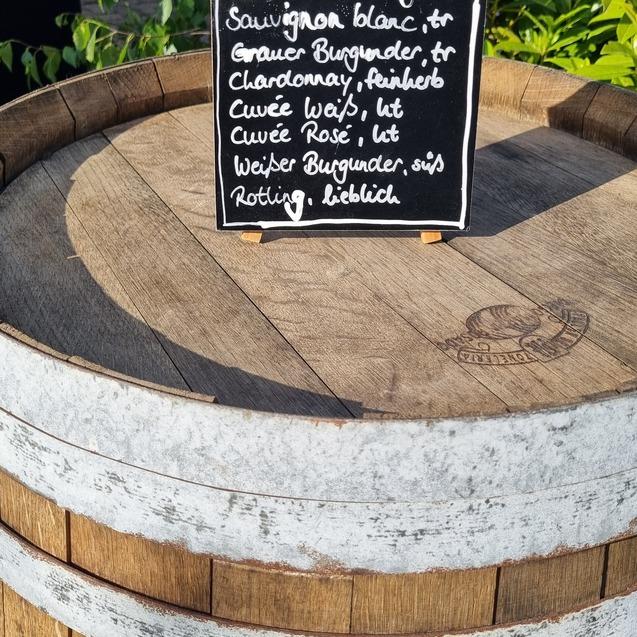 Sauvignon blanc, tr
Grauer Burgunder, tr
Chardonnay, feinherb
Cuvée Weiß, ht
Cuvée Rosé, ht
Weißer Burgunder, süß
Rotling, lieblich
TONELERIA